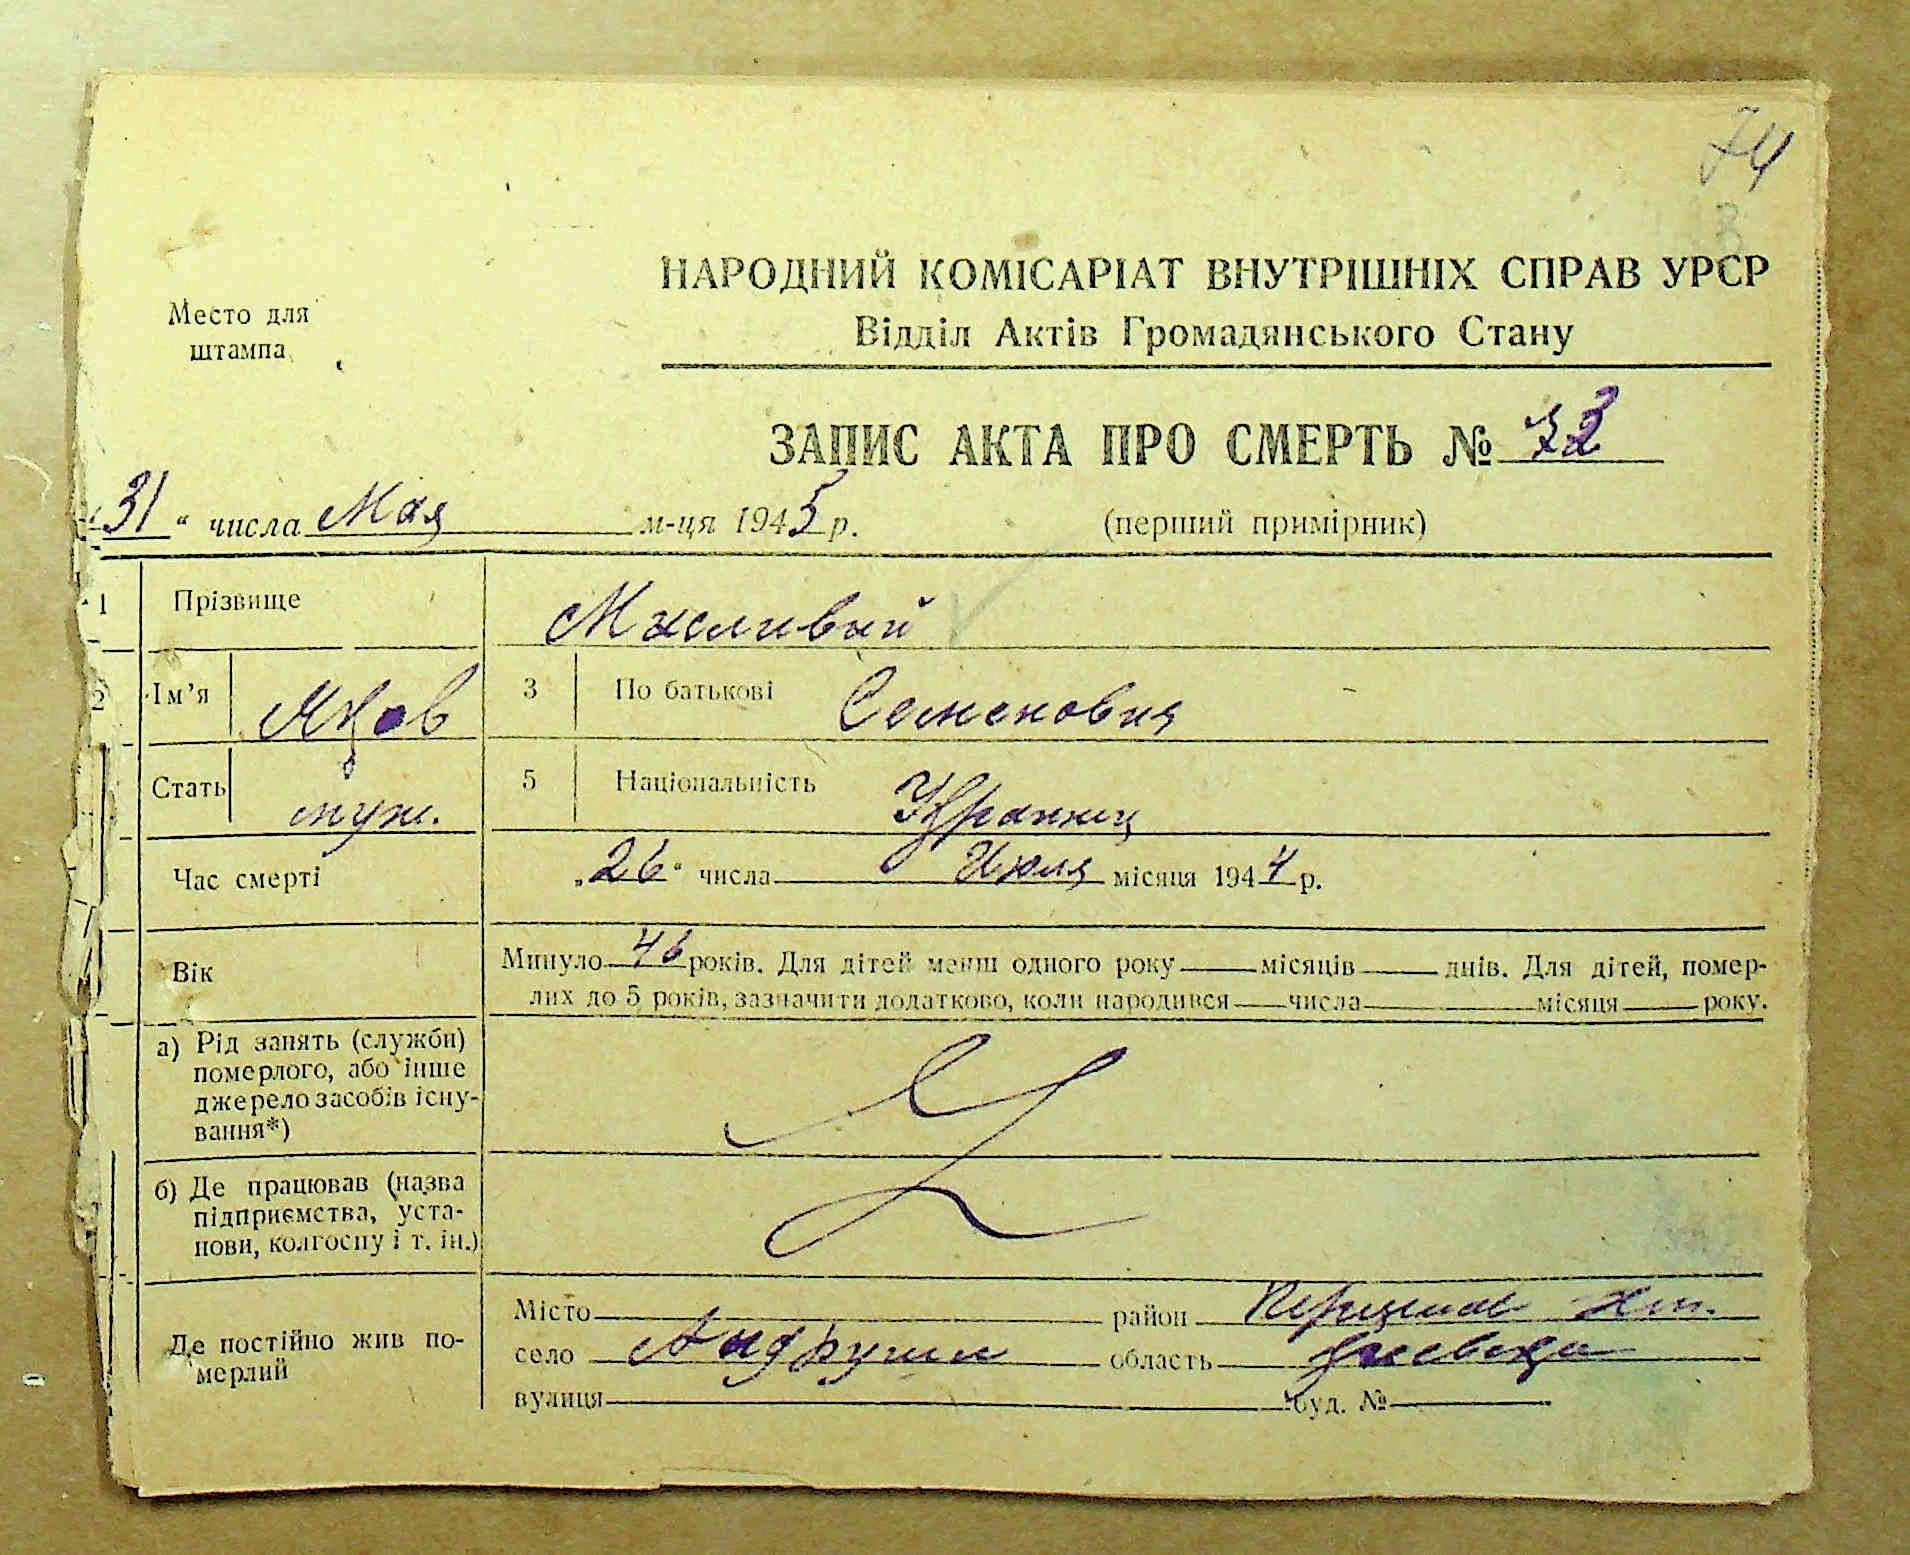 74
3
НАРОДНИЙ КОМІСАРІАТ ВНУТРІШНІХ СПРАВ УРСР
Место для штампа
Відділ Актів Громадянського Стану
ЗАПИС АКТА ПРО СМЕРТЬ №
„31“ числа Мая м-ця 1945 р.
(перший примірник)
1 Прізвище Мисливый
2 Ім’я Яков 3 По батькові Семенович
Стать муж. 5 Національність Украинец
Час смерті „26“ числа Июля місяця 1944 р.
Вік Минуло 46 років. Для дітей менш одного року місяців днів. Для дітей, помер-
лих до 5 років, зазначити додатково, коли народився числа місяця року.
а) Рід занять (служби)
померлого, або інше
джерело засобів існу-
вання*)
б) Де працював (назва
підприємства, уста-
нови, колгоспу і т. ін.)
Де постійно жив по-
мерлий
Місто район
село Андруши область Киевская
вулиця буд. №